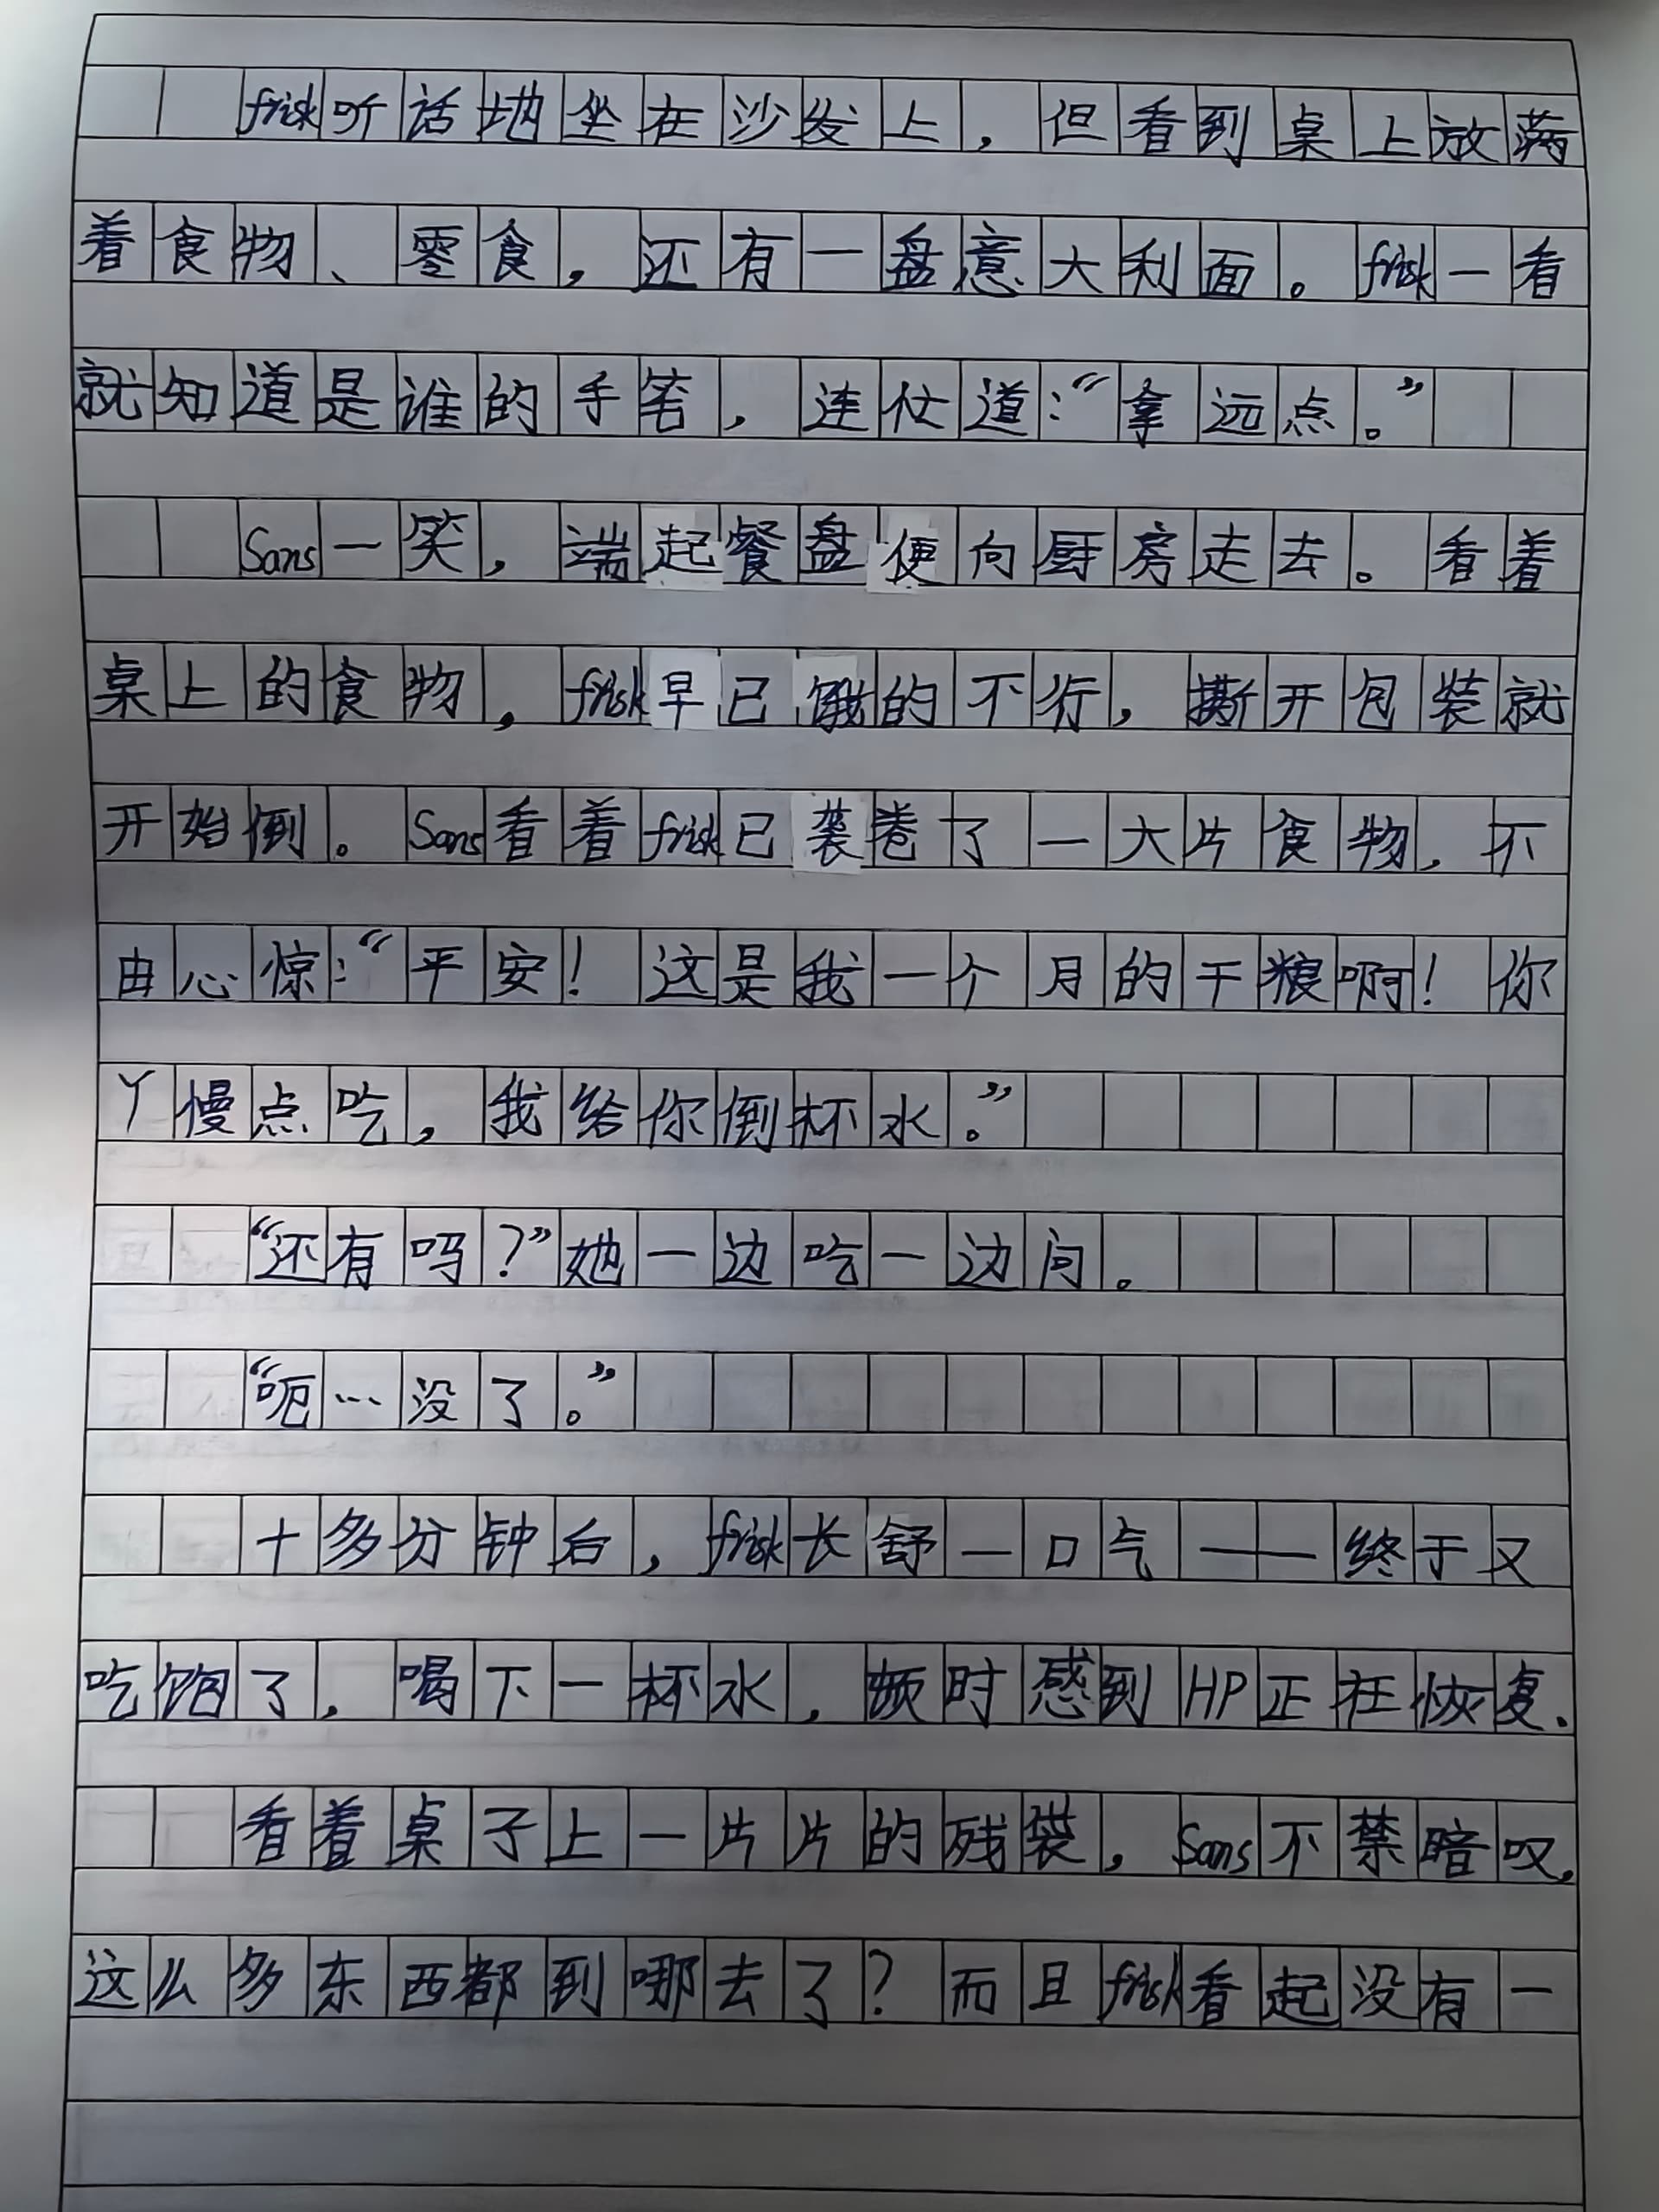 frisk听话地坐在沙发上，但看到桌上放满
着食物、零食，还有一盘意大利面。frisk一看
就知道是谁的手笔，连忙道：“拿远点。”
Sans一笑，端起餐盘便向厨房走去。看着
桌上的食物，frisk早已饿的不行，撕开包装就
开始倒。Sans看着frisk已袭卷了一大片食物，不
由心惊：“平安！这是我一个月的干粮啊！你
丫慢点吃，我给你倒杯水。”
“还有吗？”她一边吃一边问。
“呃…没了。”
十多分钟后，frisk长舒一口气——终于又
吃饱了，喝下一杯水，顿时感到HP正在恢复.
看着桌子上一片片的残袋，Sans不禁暗叹，
这么多东西都到哪去了？而且frisk看起没有一